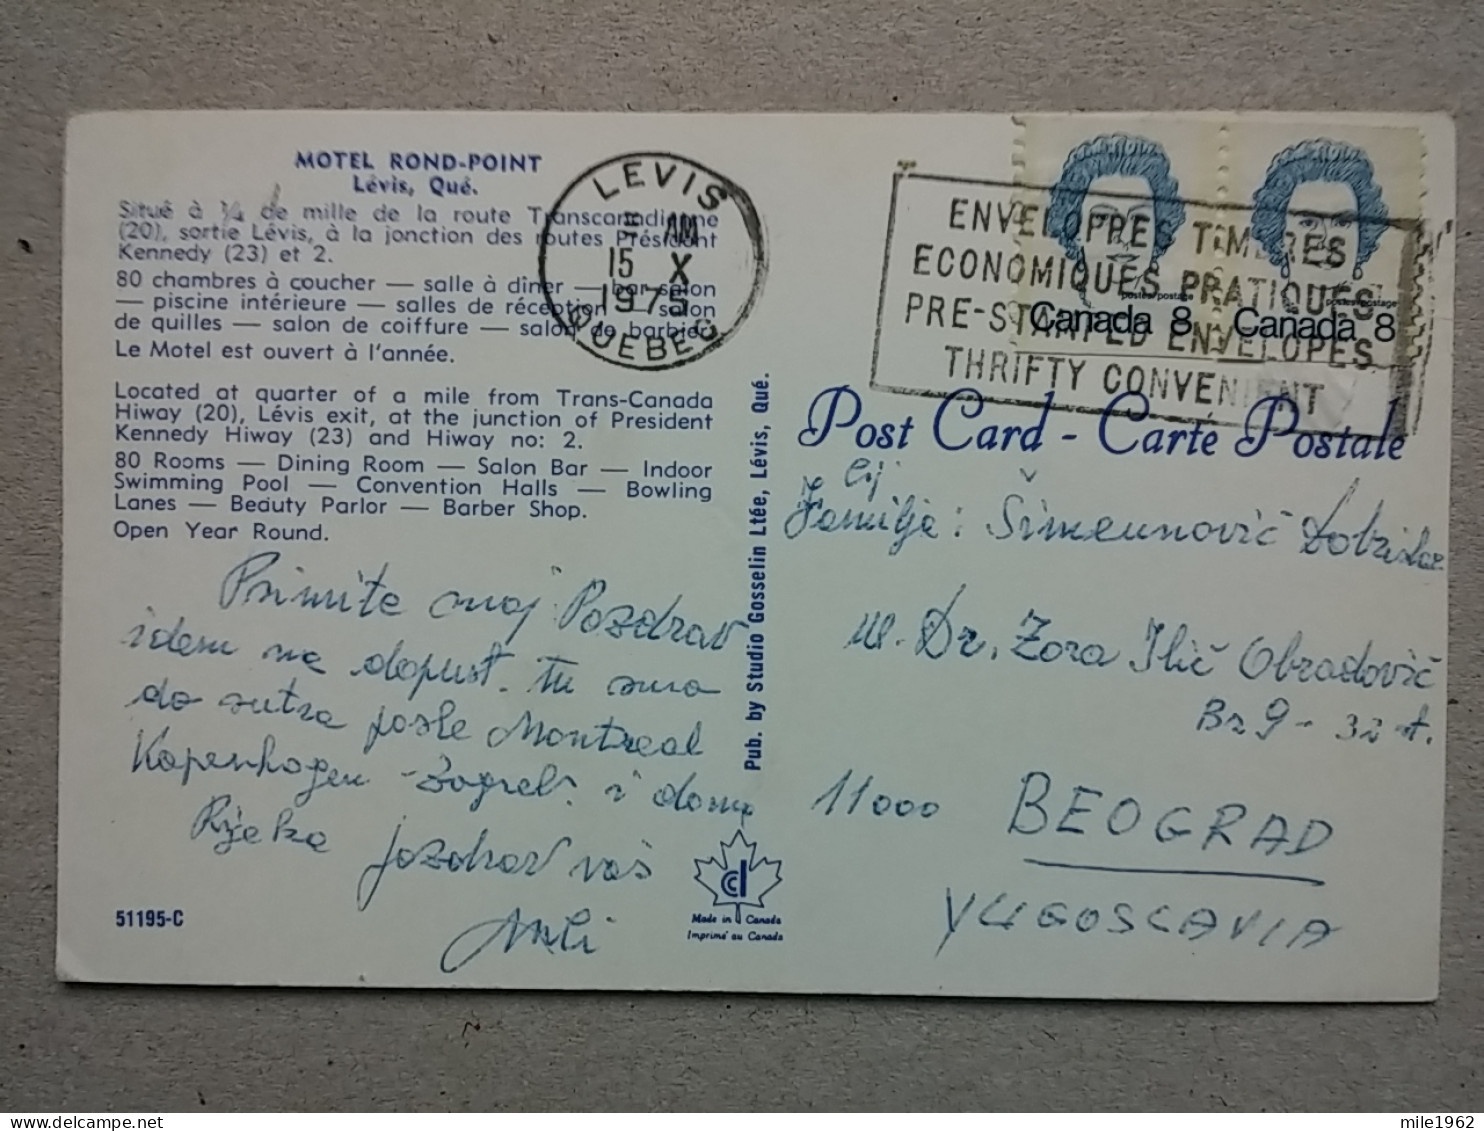 MOTEL ROND-POINT
Lévis, Qué.
Situé à ¼ de mille de la route Transcanadienne
(20), sortie Lévis, à la jonction des routes Président
Kennedy (23) et 2.
80 chambres à coucher — salle à dîner — bar salon
— piscine intérieure — salles de réception — salon
de quilles — salon de coiffure — salon de barbier.
Le Motel est ouvert à l'année.
Located at quarter of a mile from Trans-Canada
Hiway (20), Lévis exit, at the junction of President
Kennedy Hiway (23) and Hiway no: 2.
80 Rooms — Dining Room — Salon Bar — Indoor
Swimming Pool — Convention Halls — Bowling
Lanes — Beauty Parlor — Barber Shop.
Open Year Round.
Primite moj Pozdrav
idem na dopust. tu smo
do sutra posle Montreal
Kopenhagen - Zagreb. i doma
Rijeka pozdrav vaš
51195-C
LEVIS
AM
15 X
1975
QUEBEC
Pub. by Studio Gosselin Ltée, Lévis, Qué.
Made in Canada
Imprimé au Canada
postes/postage
Canada 8
postes/postage
Canada 8
ENVELOPPES TIMBRES
ECONOMIQUES PRATIQUES
PRE-STAMPED ENVELOPES
THRIFTY CONVENIENT
Post Card - Carte Postale
Familje: Šimeunovič
ul. Dr. Zora Ilič Obradovič
Br 9 -
11000 BEOGRAD
YUGOSLAVIA
mile1962